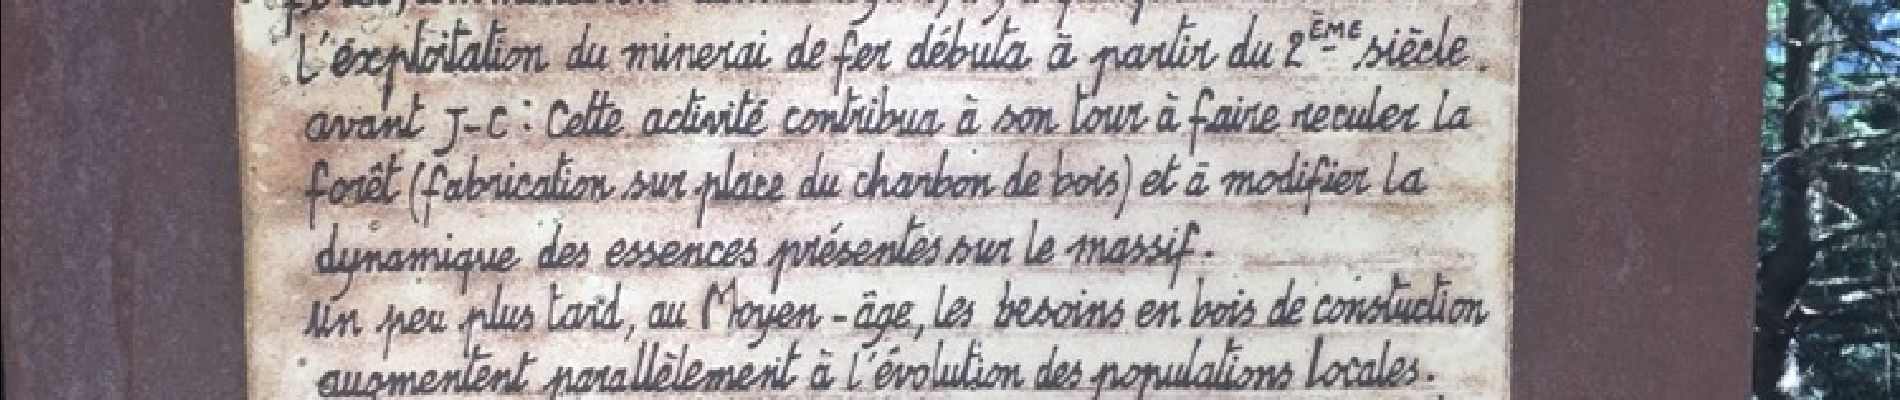 L'éxploitation du minerai de fer débuta à partir du 2ÈME siècle.
avant J-C : Cette activité contribua à son tour à faire reculer la
forêt (fabrication sur place du charbon de bois) et à modifier la
dynamique des essences présentes sur le massif.
Un peu plus tard, au Moyen-âge, les besoins en bois de constuction
augmentent parallèlement à l'évolution des populations locales.